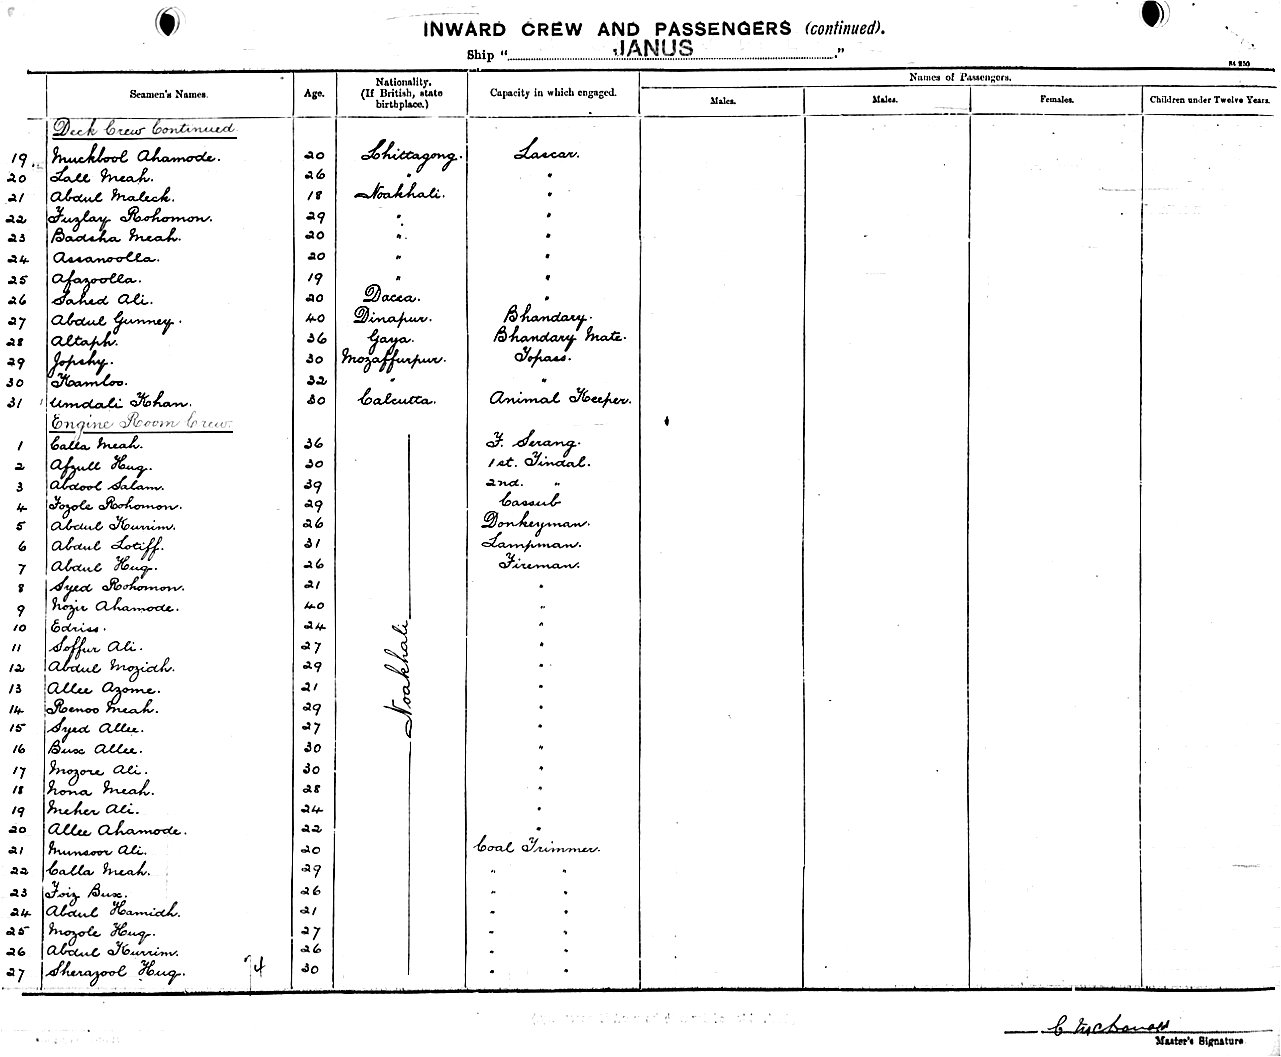 INWARD CREW AND PASSENGERS (continued).
Ship " JANUS "
Seamen's Names. Age. Nationality. (If British, state birthplace.) Capacity in which engaged. Names of Passengers.
Males. Males. Females. Children under Twelve Years.
Deck Crew Continued
19 Muckbool Ahamode. 20 Chittagong. Lascar.
20 Lall Meah. 26 " "
21 Abdul Maleck. 18 Noakhali. "
22 Fuzlay Rohomon. 29 " "
23 Badsha Meah. 20 " "
24 Assanoolla. 20 " "
25 Afazoolla. 19 " "
26 Sahed Ali. 20 Dacca. "
27 Abdul Gunney. 40 Dinapur. Bhandary.
28 Altaph. 36 Gaya. Bhandary Mate.
29 Jopshy. 30 Mozaffurpur. Topass.
30 Kamloo. 32 " "
31 Umdali Khan. 30 Calcutta. Animal Keeper.
Engine Room Crew.
1 Calla Meah. 36 F. Serang.
2 Afzull Huq. 30 1st. Tindal.
3 Abdool Salam. 39 2nd. "
4 Fozole Rohomon. 29 Cassub
5 Abdul Kurrim. 26 Donkeyman.
6 Abdul Lotiff. 31 Lampman.
7 Abdul Huq. 26 Fireman.
8 Syed Rohomon. 21 "
9 Nozir Ahamode. 40 "
10 Edriss. 24 "
11 Soffur Ali. 27 "
12 Abdul Mozidh. 29 "
13 Allee Azome. 21 "
14 Renoo Meah. 29 "
15 Syed Allee. 27 "
16 Bux Allee. 30 "
17 Mozore Ali. 30 "
18 Nona Meah. 28 "
19 Meher Ali. 24 "
20 Allee Ahamode. 22 "
21 Munsoor Ali. 20 Coal Trimmer.
22 Calla Meah. 29 " "
23 Foiz Bux. 26 " "
24 Abdul Hamidh. 21 " "
25 Mozole Huq. 27 " "
26 Abdul Kurrim. 26 " "
27 Sherazool Huq. 74 30 " "
Noakhali
Master's Signature